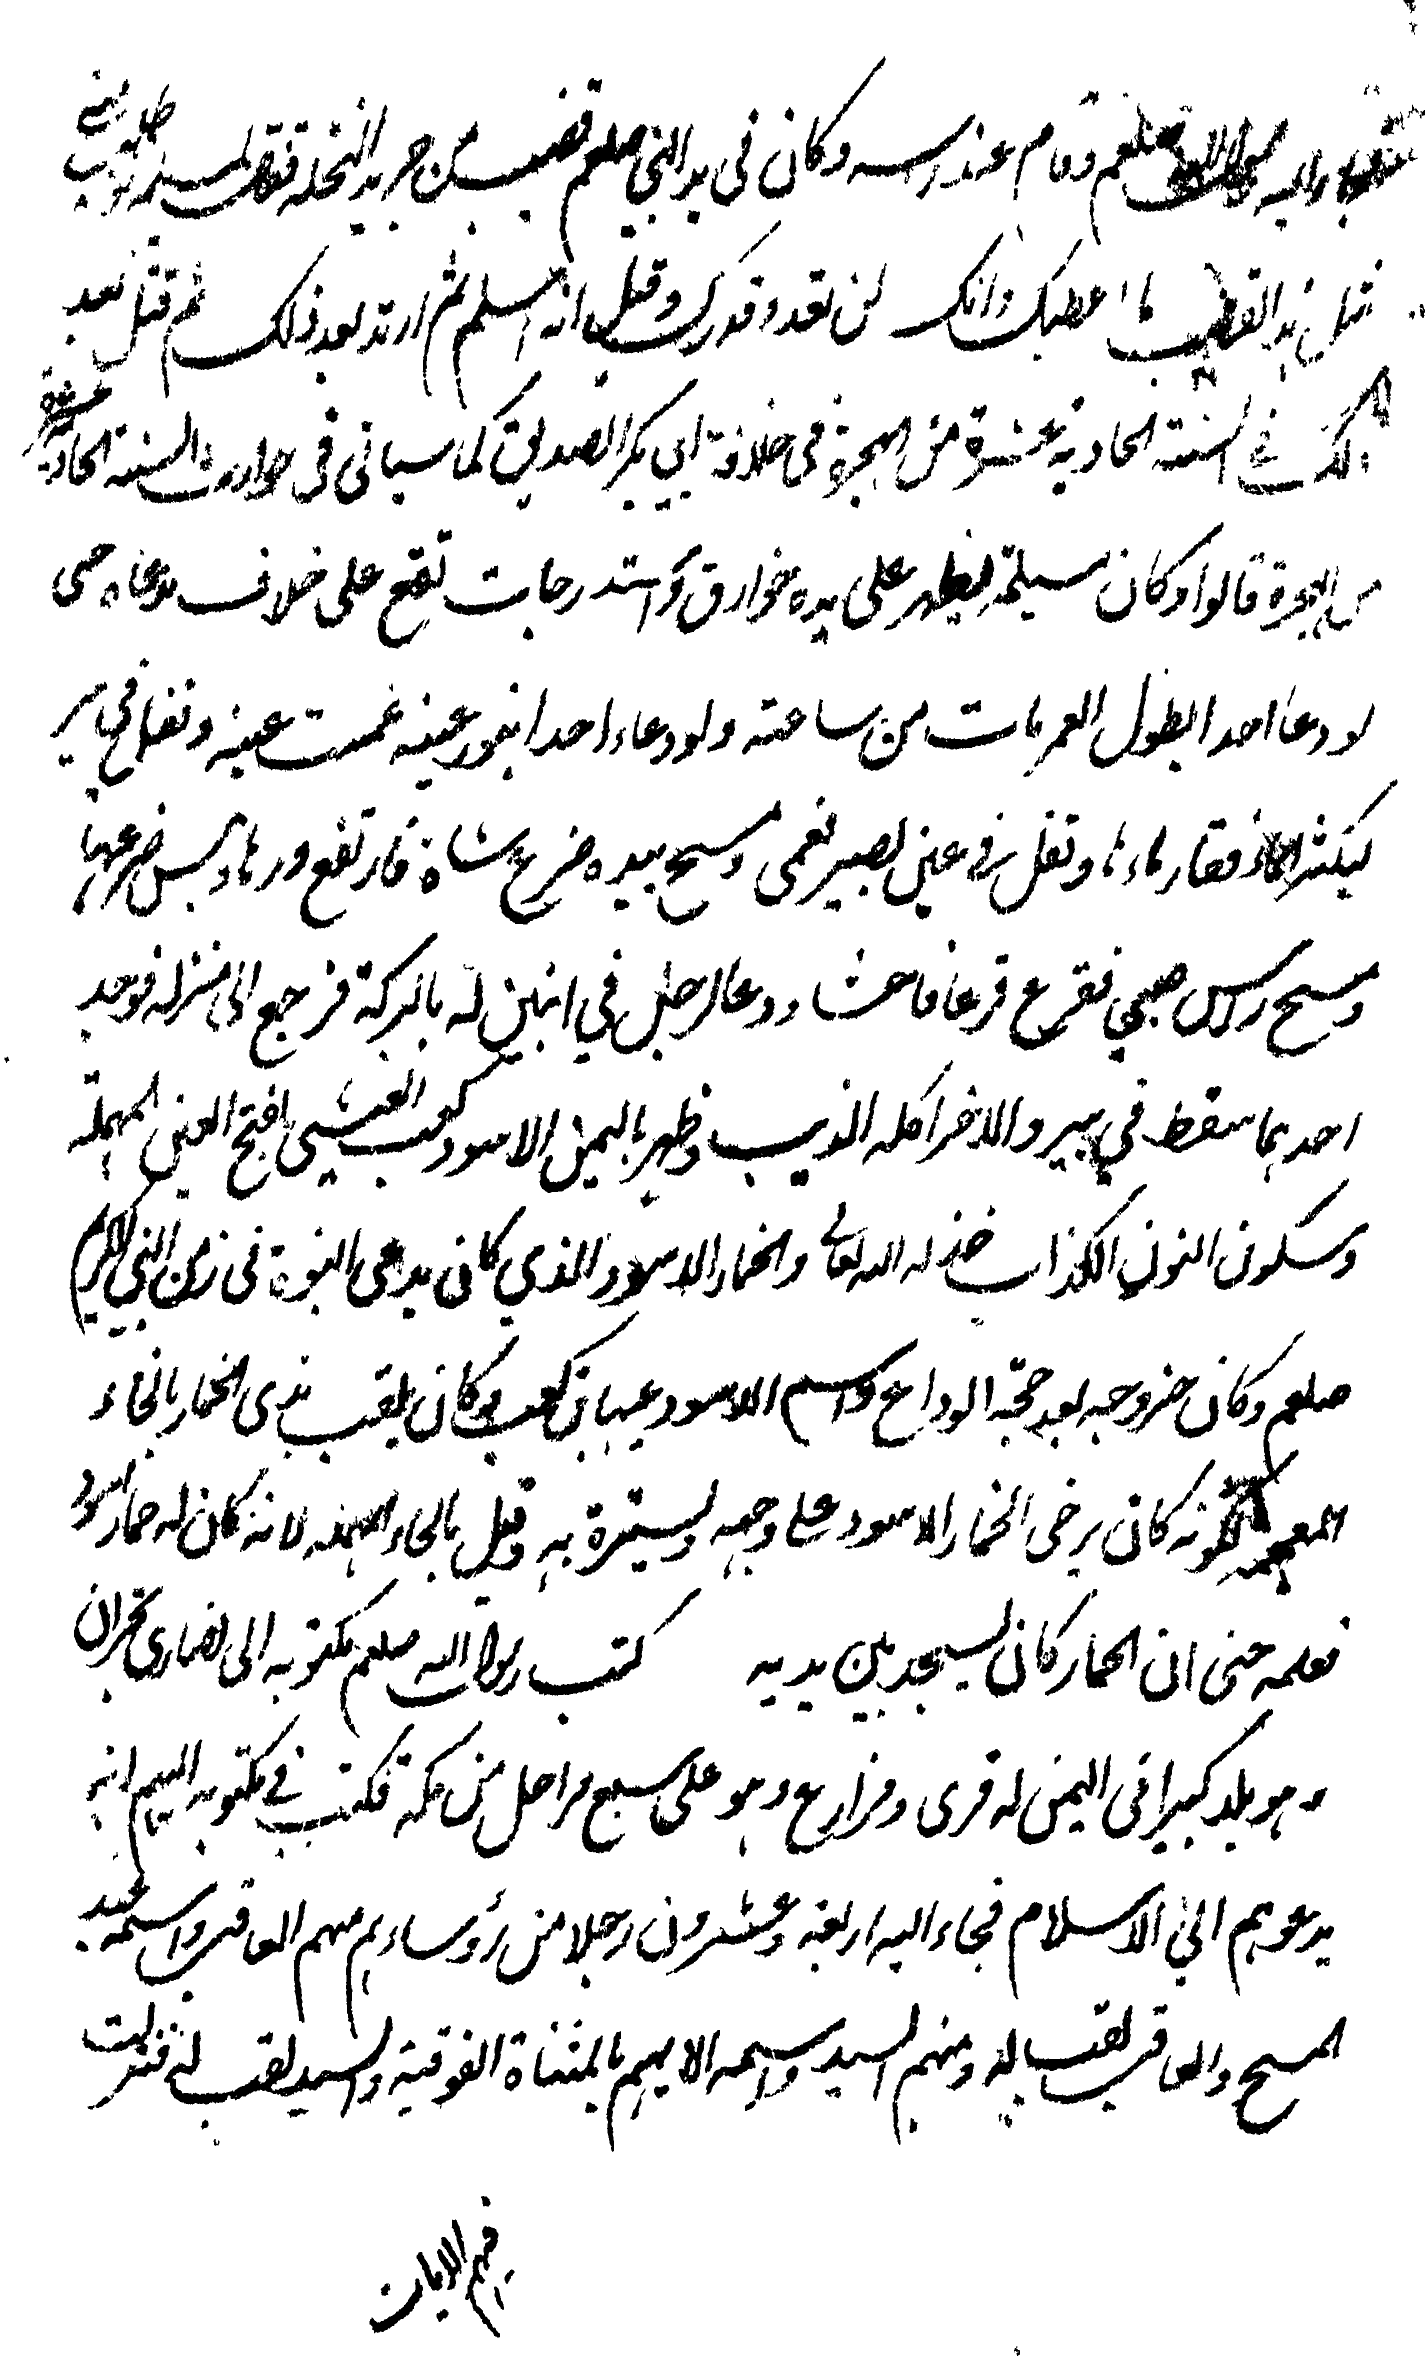 فجاء اليه رسول الله صلعم وقام عند راسه وكان في يد النبي صلعم قضيب من جريد النخلة فقال لمسيلمة لو طلبت مني
مثل هذ القضيب ما اعطيك وانك لن تعدو قدرك وقيل انه اسلم ثم ارتد بعد ذلك ثم قتل بعد
ذلك في السنة الحادية عشرة من الهجرة في خلافة ابي بكر الصديق كما سياتي في حوادث السنة الحادية عشرة
من الهجرة قالوا وكان مسيلمة يظهر على يده خوارق واستدرجات تقع على خلاف مدعاه حتى
لو دعا احدا بطول العمر مات من ساعته ولو دعا احدا بنور عينه عميت عينه وتفل في بير
ليكثر الماء فغار ماءها وتفل في عين بصير فعمى ومسح بيده ضرع شاة فارتفع درها ويبس ضرعها
ومسح راس صبي فقرع قرعا فاحشا ودعا لرجل في ابنين له بالبركة فرجع الى منزله فوجد
احدهما سقط في بير والاخر اكله الذيب وظهر باليمن الاسود كعب العنسي بفتح العين المهملة
وسكون النون الكذاب خذله الله تعالى والخمار الاسود الذي كان يدعى النبوة في زمن النبي الكريم
صلعم وكان خروجه بعد حجة الوداع واسم الاسود عيهله بن كعب وكان يلقب بذى الخمار بالخاء
المعجمة لكونه كان يرخى الخمار الاسود على وجهه ويستره به وقيل بالحاء المهمله لانه كان له حمار اسود
فعلمه حتى ان الحمار كان يسجد بين يديه كتب رسول الله صلعم مكتوبه الى نصارى نجران
وهو بلد كبير في اليمن له قرى ومزارع وهو على سبع مراحل من مكة فكتب في مكتوبه اليهم انه
يدعوهم الى الاسلام فجاء اليه اربعة وعشرون رجلا من رؤساءهم منهم العاقب واسمه عبد
المسيح والعاقب لقب له ومنهم السيد واسمه الايهم بالمثناة الفوقية والسيد لقب له فنزلت
فيهم الايات